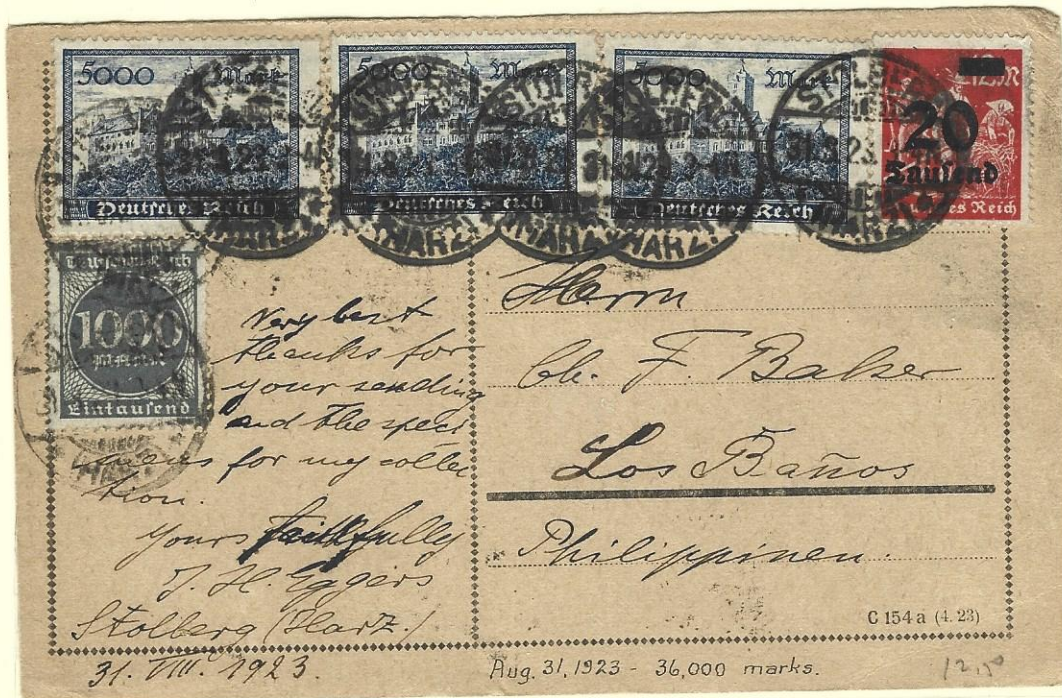 5000 Mark
Deutsches Reich
5000 Mark
Deutsches Reich
5000 Mark
Deutsches Reich
12 M
20
Tausend
Deutsches Reich
STOLBERG
31.8.23
(HARZ)
Deutsches Reich
1000
Mark
Eintausend
Very best
thanks for
your sending
and the speci
mens for my collec
tion.
Yours faithfully
J. H. Eggers
Stolberg (Harz.)
31. VIII. 1923.
Herrn
F. Baker
Los Baños
Philippinen.
C 154 a (4. 23)
Aug. 31, 1923 - 36,000 marks.
12,50